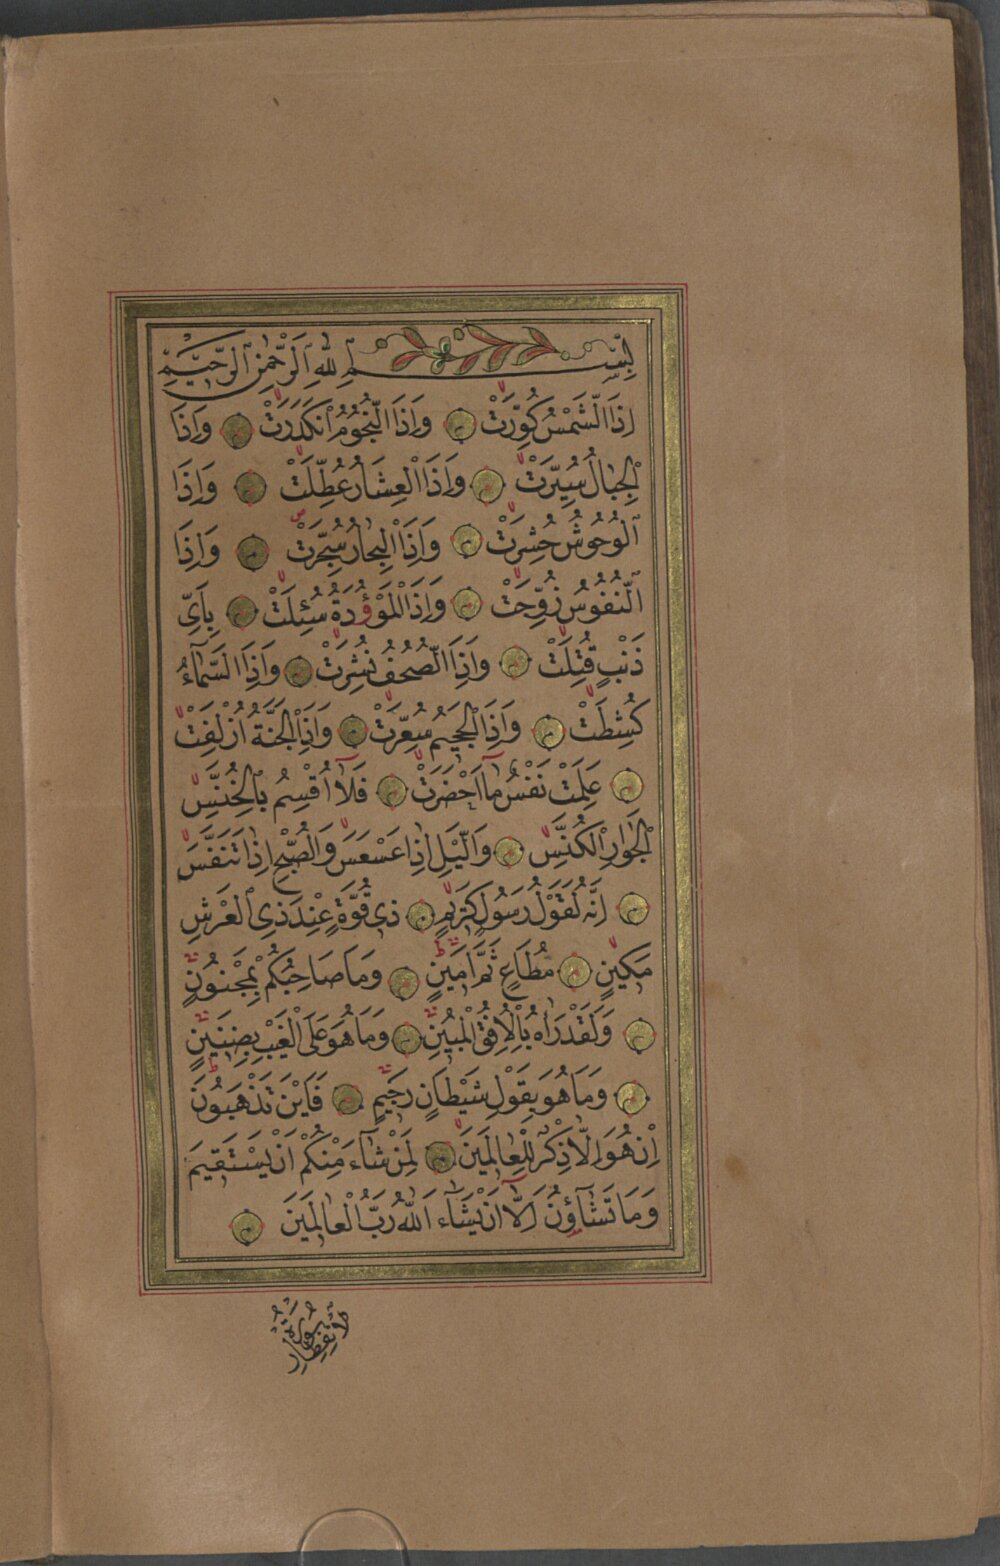 بِسْمِ اللّٰهِ الرَّحْمٰنِ الرَّحٖيمِ
اِذَا الشَّمْسُ كُوِّرَتْ وَاِذَا النُّجُومُ انْكَدَرَتْ وَاِذَا
الْجِبَالُ سُيِّرَتْ وَاِذَا الْعِشَارُ عُطِّلَتْ وَاِذَا
الْوُحُوشُ حُشِرَتْ وَاِذَا الْبِحَارُ سُجِّرَتْ وَاِذَا
النُّفُوسُ زُوِّجَتْ وَاِذَا الْمَوْؤُدَةُ سُئِلَتْ بِاَىِّ
ذَنْبٍ قُتِلَتْ وَاِذَا الصُّحُفُ نُشِرَتْ وَاِذَا السَّمَآءُ
كُشِطَتْ وَاِذَا الْجَحٖيمُ سُعِّرَتْ وَاِذَا الْجَنَّةُ اُزْلِفَتْ
عَلِمَتْ نَفْسٌ مَٓا اَحْضَرَتْ فَلَٓا اُقْسِمُ بِالْخُنَّسِ
الْجَوَارِ الْكُنَّسِ وَالَّيْلِ اِذَا عَسْعَسَ وَالصُّبْحِ اِذَا تَنَفَّسَ
اِنَّهُ لَقَوْلُ رَسُولٍ كَرٖيمٍ ذٖى قُوَّةٍ عِنْدَ ذِى الْعَرْشِ
مَكٖينٍ مُطَاعٍ ثَمَّ اَمٖينٍ وَمَا صَاحِبُكُمْ بِمَجْنُونٍ
وَلَقَدْ رَاٰهُ بِالْاُفُقِ الْمُبٖينِ وَمَا هُوَ عَلَى الْغَيْبِ بِضَنٖينٍ
وَمَا هُوَ بِقَوْلِ شَيْطَانٍ رَجٖيمٍ فَاَيْنَ تَذْهَبُونَ
اِنْ هُوَ اِلَّا ذِكْرٌ لِلْعَالَمٖينَ لِمَنْ شَآءَ مِنْكُمْ اَنْ يَسْتَقٖيمَ
وَمَا تَشَآؤُنَ اِلَّٓا اَنْ يَشَآءَ اللّٰهُ رَبُّ الْعَالَمٖينَ
سُورَةُ الْاِنْفِطَارِ